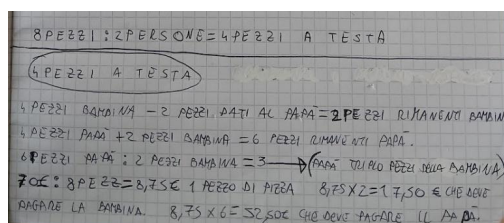 8 PEZZI : 2 PERSONE = 4 PEZZI A TESTA
4 PEZZI A TESTA
4 PEZZI BAMBINA - 2 PEZZI DATI AL PAPÀ = 2 PEZZI RIMANENTI BAMBIN
4 PEZZI PAPÀ + 2 PEZZI BAMBINA = 6 PEZZI RIMANENTI PAPÀ.
6 PEZZI PAPÀ : 2 PEZZI BAMBINA = 3 → (PAPÀ TRIPLO PEZZI DELLA BAMBINA)
70€ : 8 PEZZ = 8,75€ 1 PEZZO DI PIZZA 8,75 X 2 = 17,50 € CHE DEVE
PAGARE LA BAMBINA. 8,75 X 6 = 52,50€ CHE DEVE PAGARE IL PAPÀ.